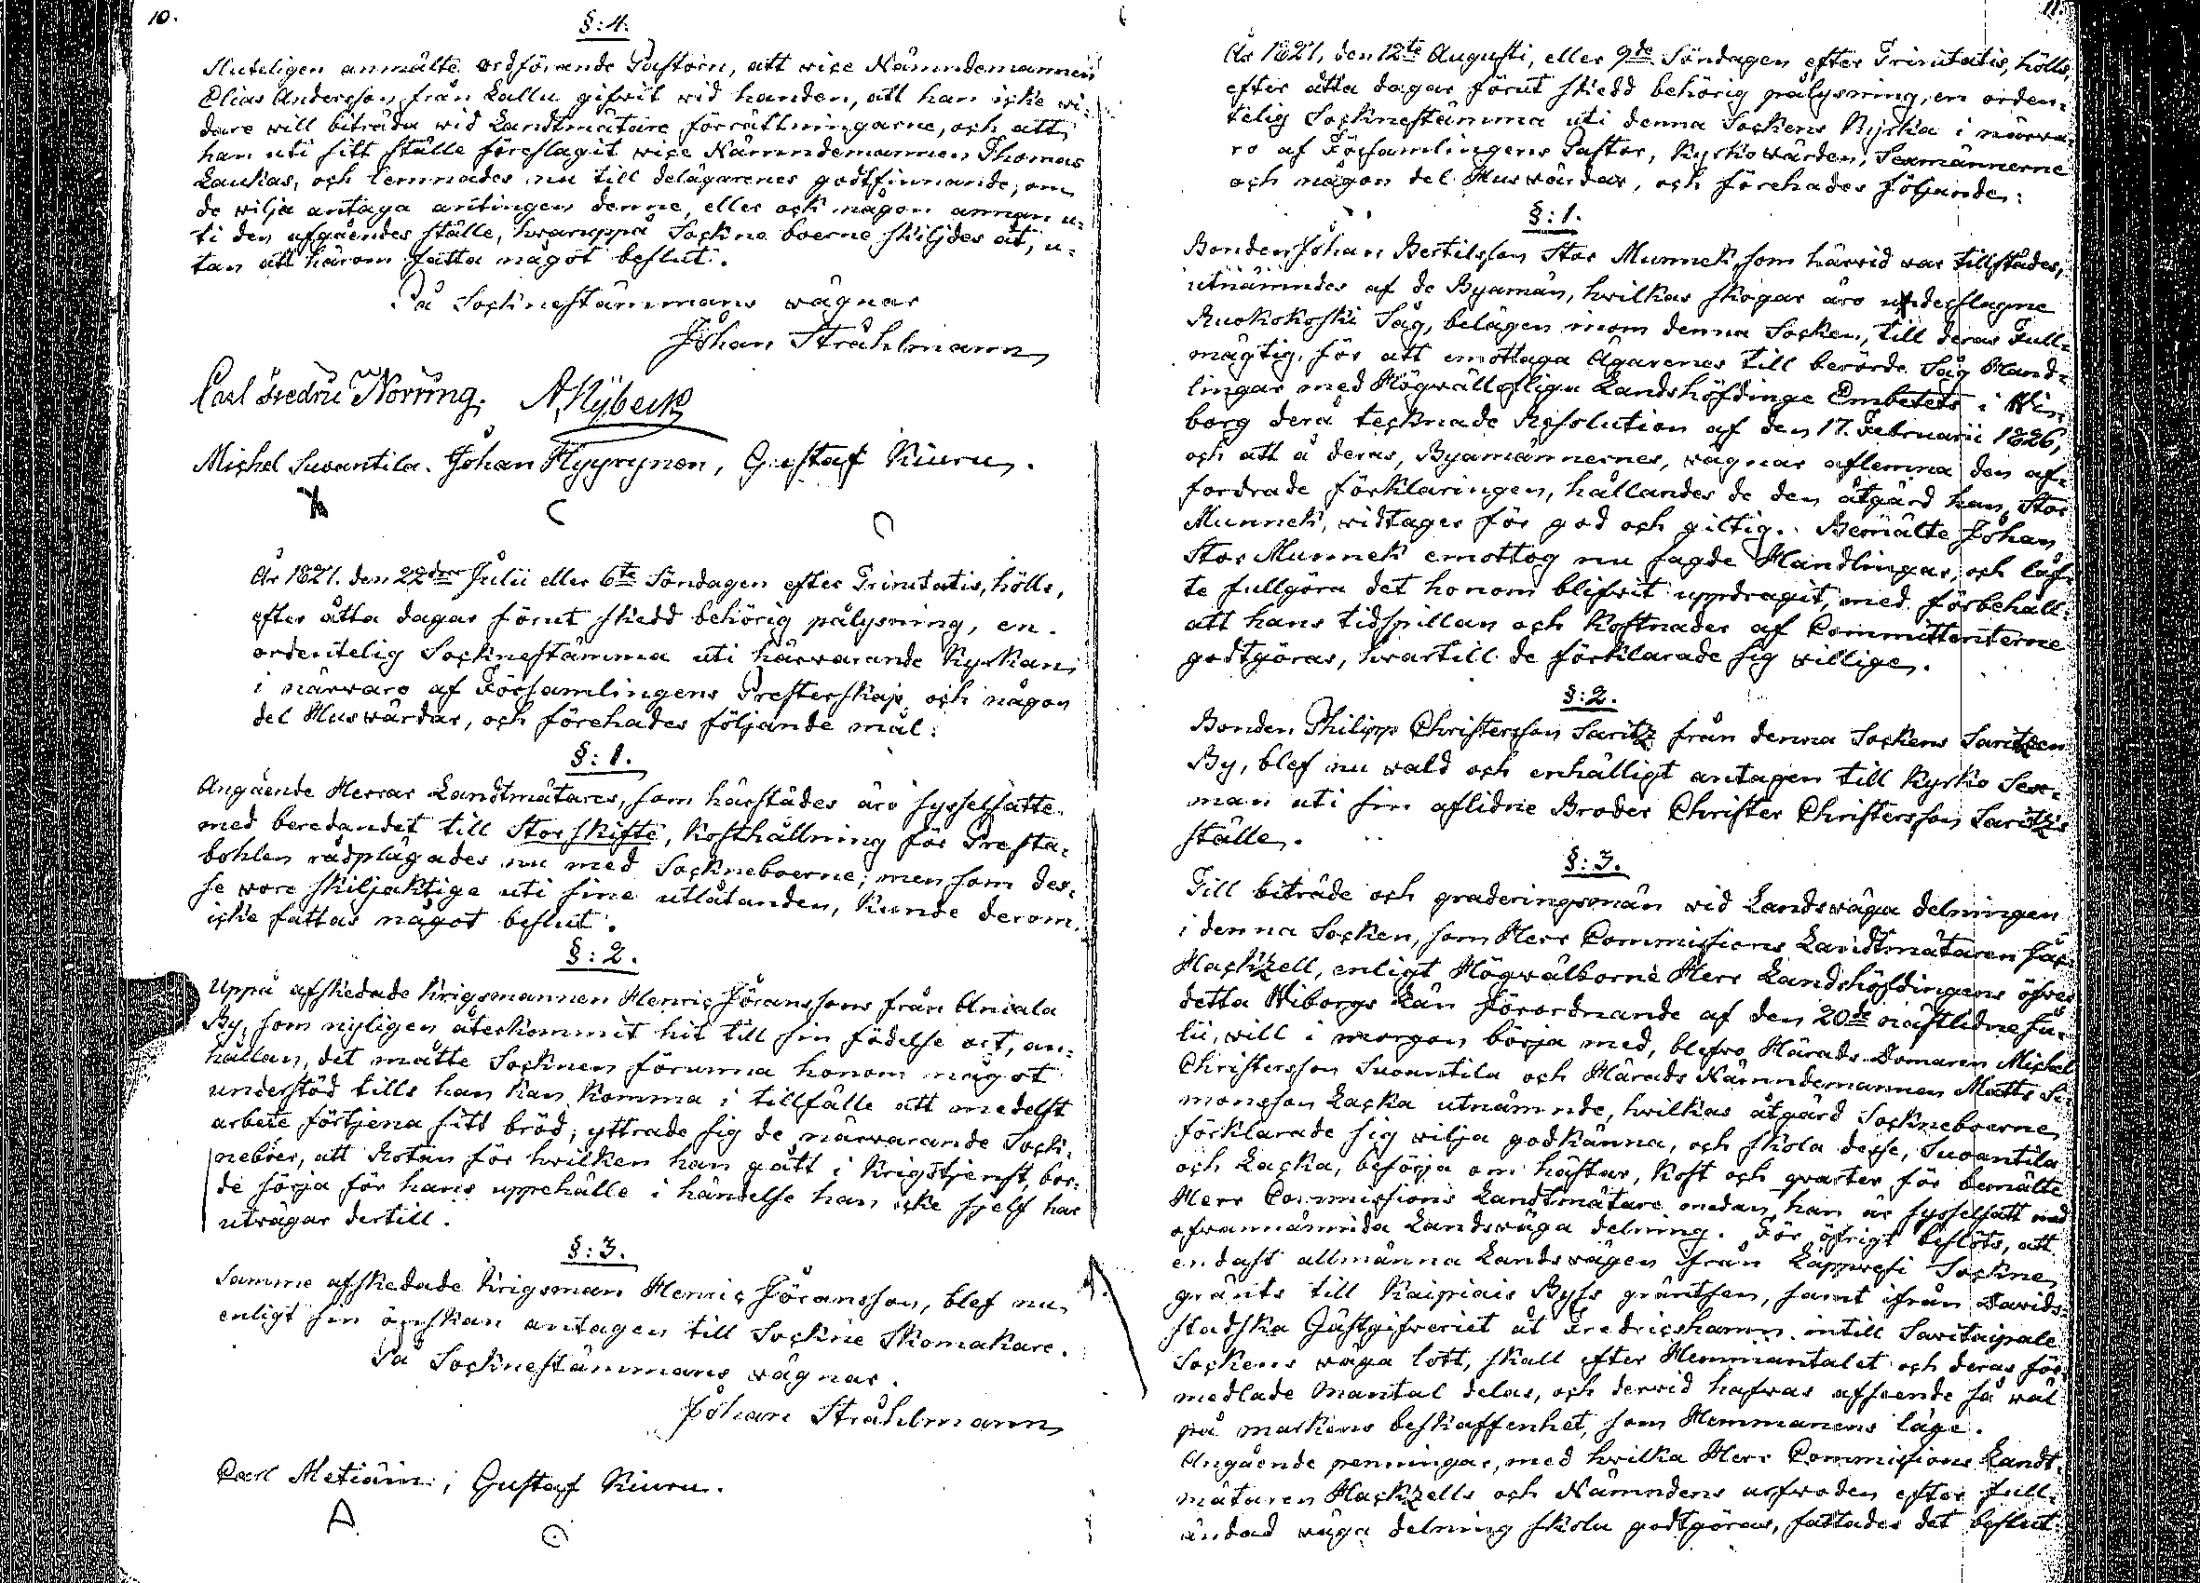 10.
§: 4.
Sluteligen anmälte ordförande Pastorn, att vice Nämndemannen
Elias Andersson från Lallu gifwit wid handen, att han icke wi-
dare will biträda wid Landtmätare förrättningarne, och att
han uti sitt ställe föreslagit vice Nämndemannen Thomas
Laukas, och lemnades nu till delägarenes godtfinnande, om
de wilja antaga antingen denne, eller och någon annan u-
ti den afgåendes ställe, hwaruppå Sockne boerne skiljdes åt, u-
tan att härom fatta något beslut.
På Socknestämmans wägnar
Johan Stråhlmann
Carl Fredric Norring. A. Nybeck
Michel Suoantila. Johan Hyyrynen, Gustaf Kiuru.
År 1827. den 22dra Julii eller 6te Söndagen efter Trinitatis, hölls,
efter åtta dagar förut skedd behörig pålysning, en
ordentelig Socknestämma uti härwarande Kyrkan,
i närwaro af Församlingens Presterskap och någon
del Huswärdar, och förehades följande mål:
§: 1.
Angående Herrar Landtmätares, som härstädes äro sysselsatte
med beredandet till Storskifte, kosthållning för Presta-
bohlen rådplägades nu med Sockneboerne; men som des-
se wore skiljaktige uti sine utlåtanden, kunde derom
icke fattas något beslut.
§: 2.
Uppå afskedade Krigsmannen Henric Jöranssons från Uniala
By, som nyligen återkommit hit till sin födelse ort, an-
hållan, det måtte Socknen förunna honom något
understöd tills han kan komma i tillfälle att medelst
arbete förtjena sitt bröd; yttrade sig de närwarande Sock-
neboer, att Rotan för hwilken han gått i Krigstjenst, bor-
de sörja för hans uppehälle i händelse han icke sjelf har
utwägar dertill.
§: 3.
Samme afskedade Krigsman Henric Jöransson, blef nu
enligt sin önskan antagen till Sockne Skomakare.
På Socknestämmans wägnar.
Johan Stråhlmann
Carl Metiäin; Gustaf Kiuru.
11.
År 1827, den 12te Augusti, eller 9de Söndagen efter Trinitatis, hölls,
efter åtta dagar förut skedd behörig pålysning, en orden-
telig Socknestämma uti denna Sockens Kyrka i närwa-
ro af Församlingens Pastor, Kyrkowärden, Sexmännerne
och någon del Huswärdar, och förehades följande:
§: 1.
Bonden Johan Bertilsson Stor Munnek, som härwid war tillstädes,
utnämndes af de Byamän, hwilkas skogar äro underslagne
Ruokokoski Såg, belägen inom denna Socken, till deras Full-
mägtig, för att emottaga Ägarenes till berörde Såg Hand-
lingar med Högwällofliga Landshöfdinge Embetets i Wi-
borg derå tecknade Resolution af den 17. Februarii 1826,
och att å deras, Byamännernes, wägnar aflemna den af-
fordrade förklaringen, hållandes de den åtgärd han, Stor
Munnek, widtager för god och giltig. Bemälte Johan
Stor Munnek emottog nu sagde Handlingar, och låf-
te fullgöra det honom blifwit uppdragit, med förbehåll
att hans tidspillan och kostnader af Committenterne
godtgöras, hwartill de förklarade sig willige.
§: 2.
Bonden Philipp Christersson Saritz från denna Sockens Saritzen
By, blef nu wald och enhälligt antagen till Kyrko Sex-
man uti sin aflidne Broder Christer Christersson Saritz's
ställe.
§: 3.
Till biträde och graderingsmän wid Landswäga delningen
i denna Socken, som Herr Commissions Landtmätaren Jac.
Hackzell, enligt Högwälborne Herr Landshöfdingens öfwer
detta Wiborgs Län Förordnande af den 20de nästlidne Ju-
lii, will i morgon börja med, blefwo Härads Domaren Michel
Christersson Suoantila och Härads Nämndemannen Matts Si-
monsson Lacka utnämnde, hwilkas åtgärd Sockneboerne
förklarade sig wilja godkänna, och skola desse, Suoantila
och Lacka, besörja om hästar, kost och qvarter för bemälte
Herr Commissions Landtmätare medan han är sysselsatt med
ofwannämnda Landswäga delning. För öfrigt beslöts, att
endast allmänna Landswägen ifrån Lappwesi Sockne
gränts till Kaipiais Bys gräntsen, samt ifrån Davids-
stadska Gästgifweriet åt Fredricshamn intill Savitaipale
Sockens wäga lott, skall efter Hemmantalet och deras för-
medlade Mantal delas, och derwid hafwas afseende så wäl
på markens beskaffenhet, som Hemmanens läge.
Angående penningar, med hwilka Herr Commissions Landt-
mätaren Hackzells och Nämndens arfwoden efter full-
ändad wäga delning skola godtgöras, fattades det beslut: